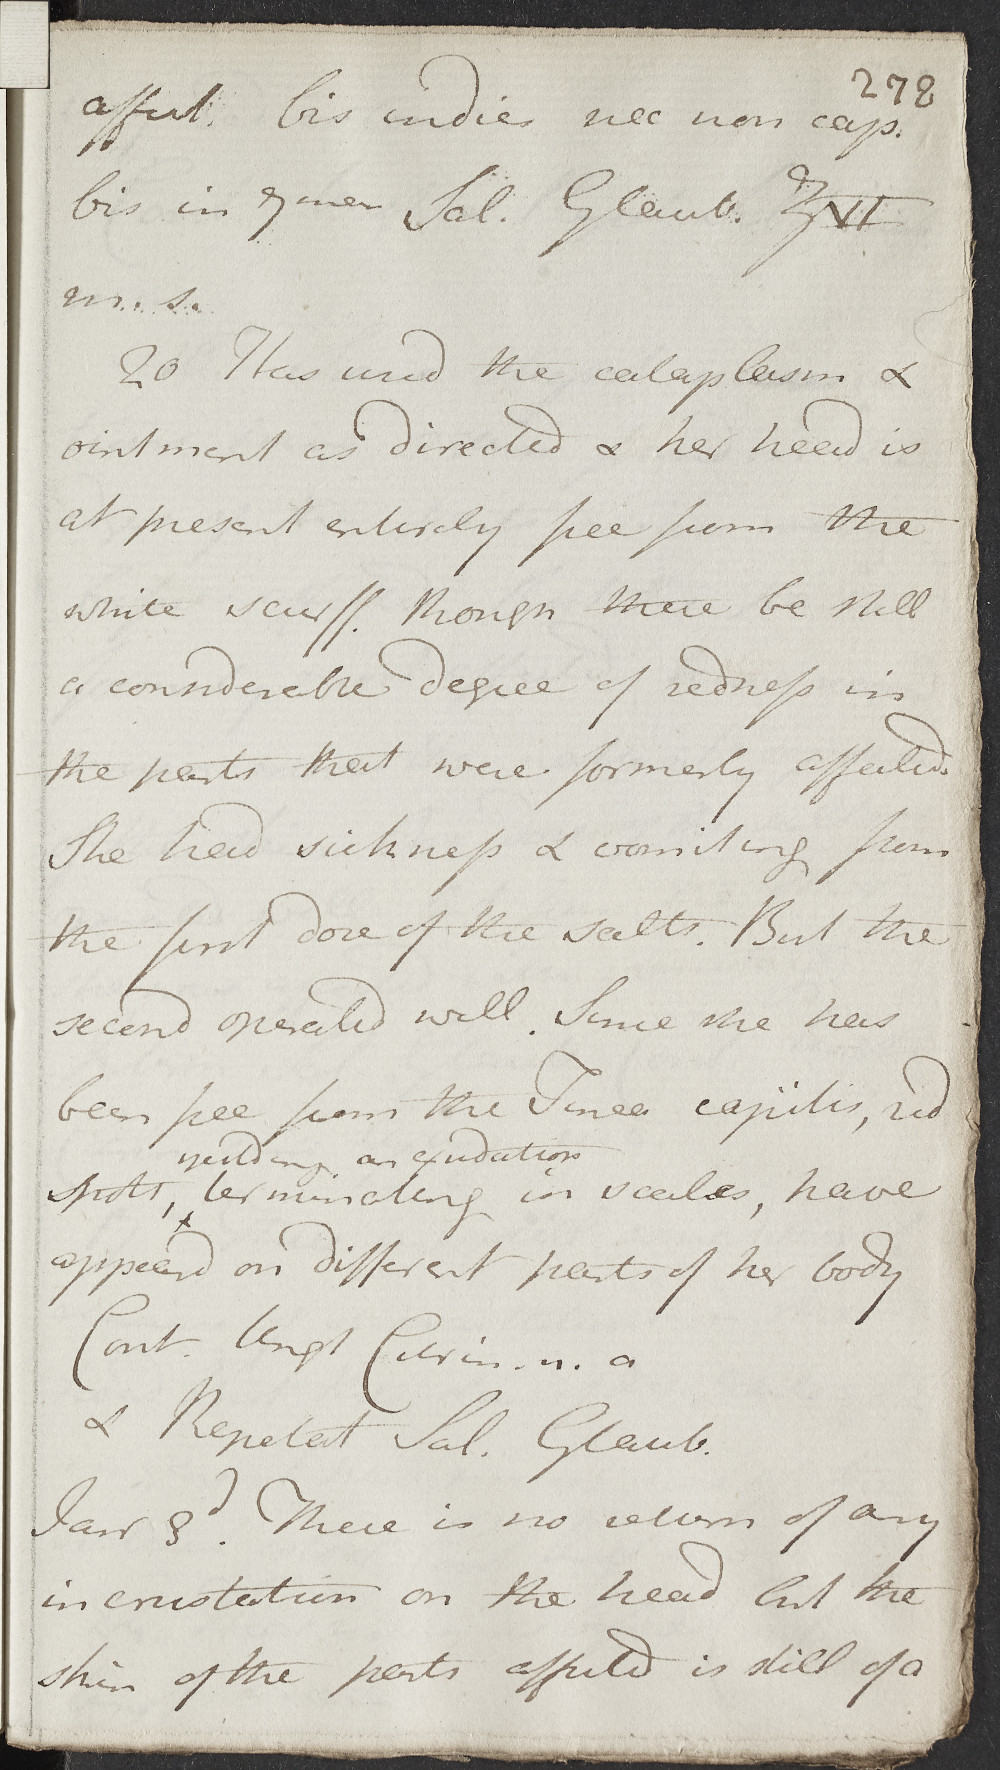 278
affect. bis indies nec non cap.
bis in 7man Sal. Glaub. ʒVI
m. s.
20 Has used the cataplasm &
ointment as directed & her head is
at present entirely free from the
white scurff. though there be still
a considerable degree of redness in
the parts that were formerly affected.
She had sickness & vomiting from
the first dose of the salts. But the
second operated well. Since she has
been free from the Tinea capitis, red
yeilding an exudation
spots, terminating in scales, have
appeard on different parts of her body
Cont. Ungt Citrin. u. a
& Repetat Sal. Glaub.
Janr 3d. There is no return of any
incrustation on the head but the
skin of the parts affectd is still of a